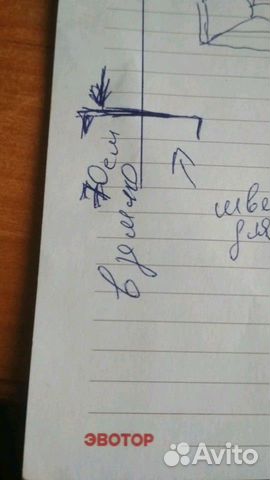 70 см
в землю
шве
для
ЭВОТОР
Avito